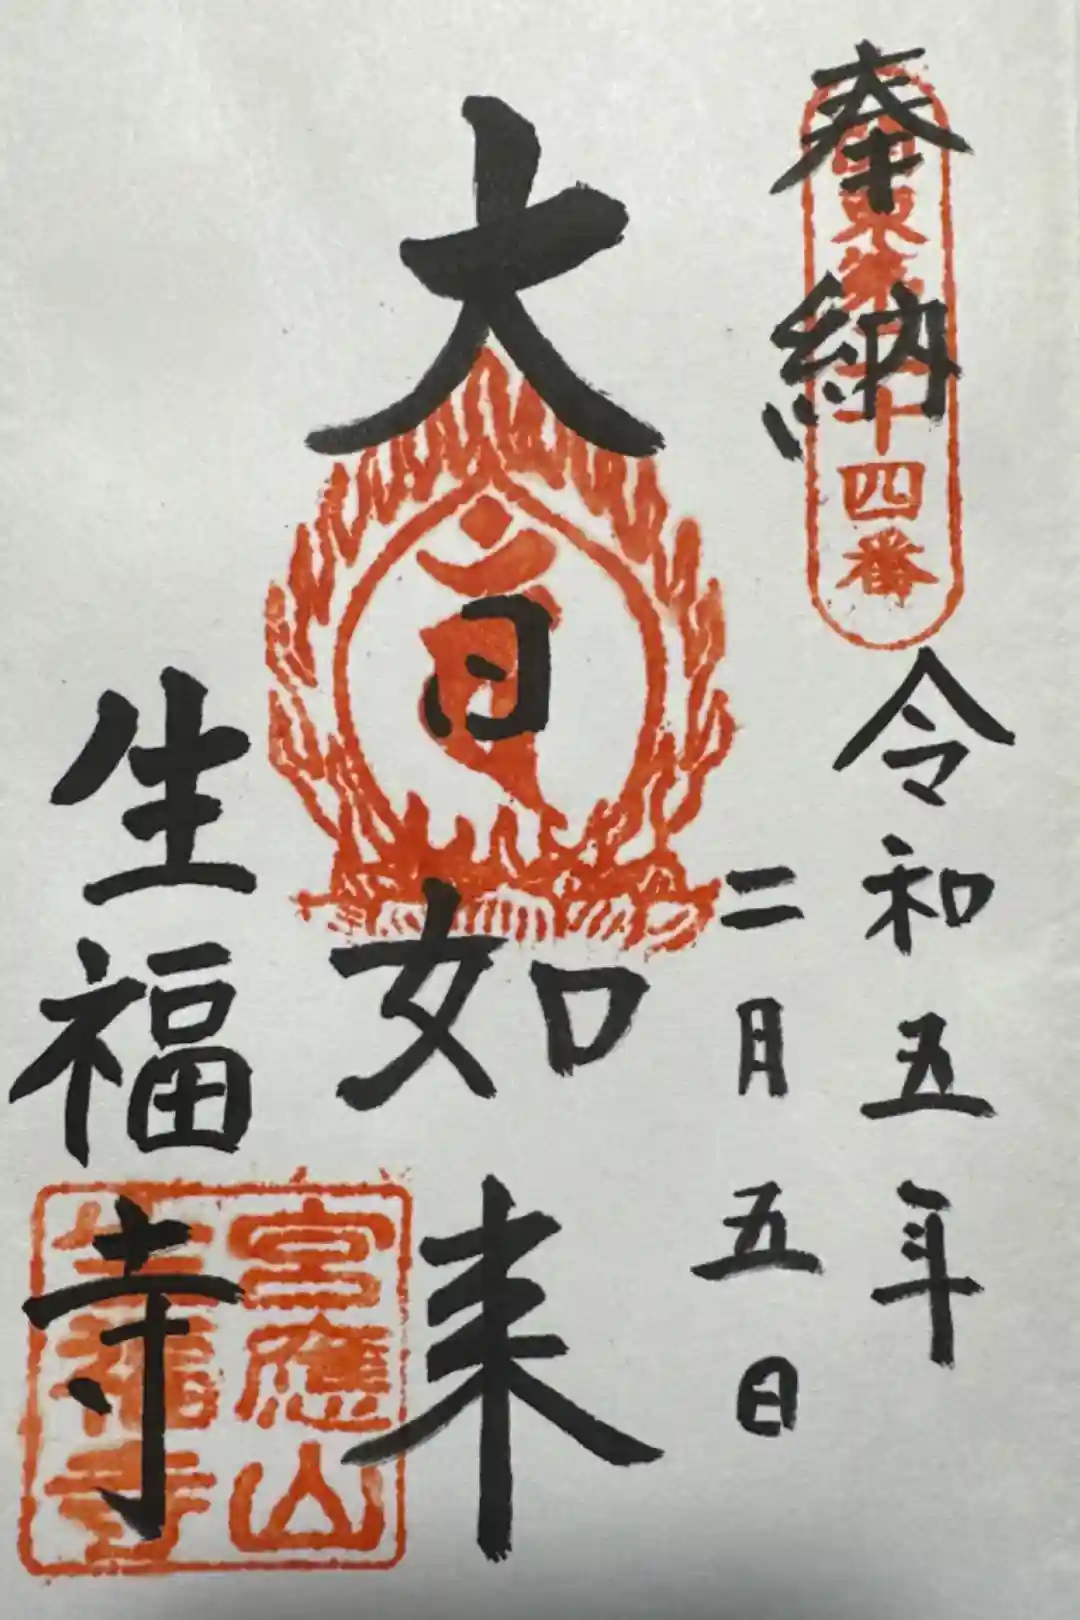 奉納
東第十四番
令和五年
二月五日
大日如来
生福寺
宮應山
生福寺